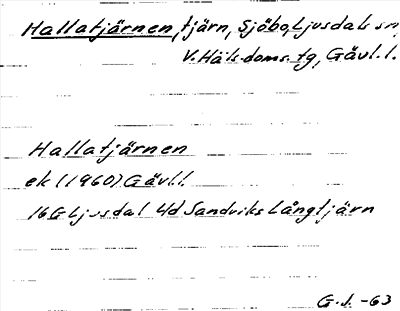 Hallatjärnen, tjärn, Sjöbo, Ljusdals sn,
V. Häls. doms. tg, Gävl. l.
Hallatjärnen
ek (1960) Gävl. l.
16G Ljusdal 4d Sandviks Långtjärn
G. J. -63